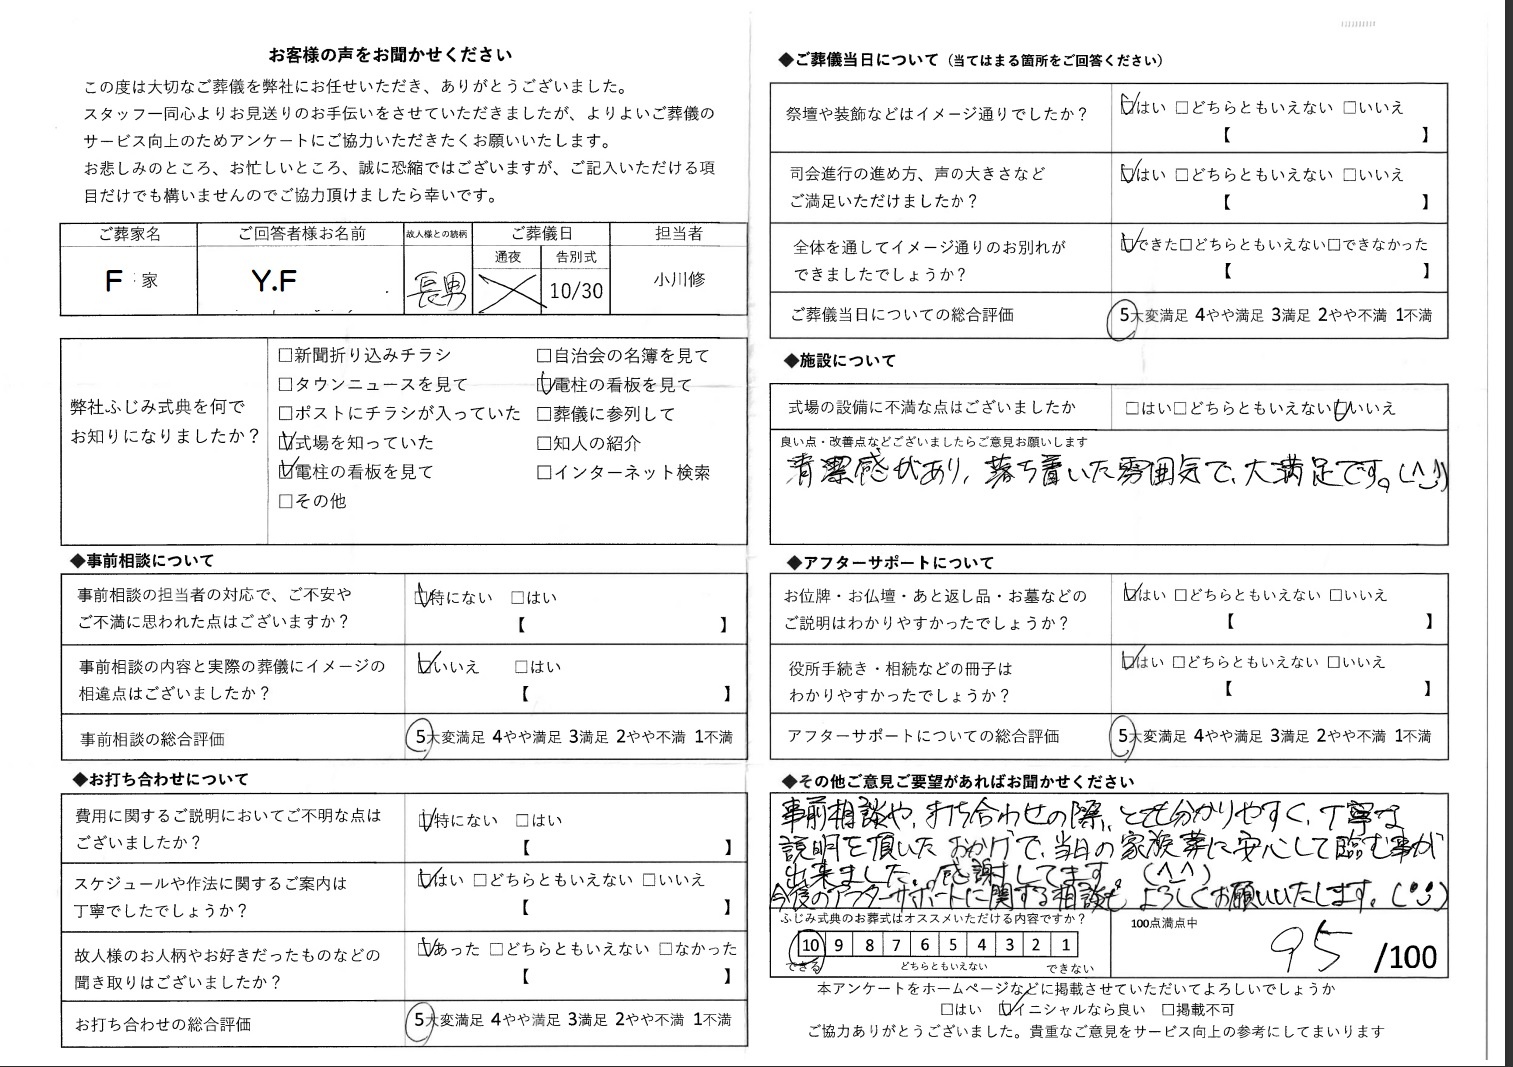 お客様の声をお聞かせください
この度は大切なご葬儀を弊社にお任せいただき、ありがとうございました。
スタッフ一同心よりお見送りのお手伝いをさせていただきましたが、よりよいご葬儀の
サービス向上のためアンケートにご協力いただきたくお願いいたします。
お悲しみのところ、お忙しいところ、誠に恐縮ではございますが、ご記入いただける項
目だけでも構いませんのでご協力頂けましたら幸いです。
ご葬家名 ご回答者様お名前 故人様との続柄 ご葬儀日 担当者
通夜 告別式
F 家 Y.F 長男 10/30 小川修
弊社ふじみ式典を何で
お知りになりましたか？
□新聞折り込みチラシ □自治会の名簿を見て
□タウンニュースを見て ☑電柱の看板を見て
□ポストにチラシが入っていた □葬儀に参列して
☑式場を知っていた □知人の紹介
☑電柱の看板を見て □インターネット検索
□その他
◆事前相談について
事前相談の担当者の対応で、ご不安や
ご不満に思われた点はございますか？
☑特にない □はい
【 】
事前相談の内容と実際の葬儀にイメージの
相違点はございましたか？
☑いいえ □はい
【 】
事前相談の総合評価 5大変満足 4やや満足 3満足 2やや不満 1不満
◆お打ち合わせについて
費用に関するご説明においてご不明な点は
ございましたか？
☑特にない □はい
【 】
スケジュールや作法に関するご案内は
丁寧でしたでしょうか？
☑はい □どちらともいえない □いいえ
【 】
故人様のお人柄やお好きだったものなどの
聞き取りはございましたか？
☑あった □どちらともいえない □なかった
【 】
お打ち合わせの総合評価 5大変満足 4やや満足 3満足 2やや不満 1不満
◆ご葬儀当日について（当てはまる箇所をご回答ください）
祭壇や装飾などはイメージ通りでしたか？
☑はい □どちらともいえない □いいえ
【 】
司会進行の進め方、声の大きさなど
ご満足いただけましたか？
☑はい □どちらともいえない □いいえ
【 】
全体を通してイメージ通りのお別れが
できましたでしょうか？
☑できた□どちらともいえない□できなかった
【 】
ご葬儀当日についての総合評価 5大変満足 4やや満足 3満足 2やや不満 1不満
◆施設について
式場の設備に不満な点はございましたか □はい□どちらともいえない☑いいえ
良い点・改善点などございましたらご意見お願いします
清潔感があり、落ち着いた雰囲気で、大満足です。(^^)
◆アフターサポートについて
お位牌・お仏壇・あと返し品・お墓などの
ご説明はわかりやすかったでしょうか？
☑はい □どちらともいえない □いいえ
【 】
役所手続き・相続などの冊子は
わかりやすかったでしょうか？
☑はい □どちらともいえない □いいえ
【 】
アフターサポートについての総合評価 5大変満足 4やや満足 3満足 2やや不満 1不満
◆その他ご意見ご要望があればお聞かせください
事前相談や、打ち合わせの際、とても分かりやすく、丁寧な
説明を頂いたおかげで、当日の家族葬に安心して臨む事が
出来ました。感謝してます (^_^)
今後のアフターサポートに関する相談も よろしくお願いいたします。(^^)
ふじみ式典のお葬式はオススメいただける内容ですか？
10 9 8 7 6 5 4 3 2 1
できる どちらともいえない できない
100点満点中
95 /100
本アンケートをホームページなどに掲載させていただいてよろしいでしょうか
□はい ☑イニシャルなら良い □掲載不可
ご協力ありがとうございました。貴重なご意見をサービス向上の参考にしてまいります